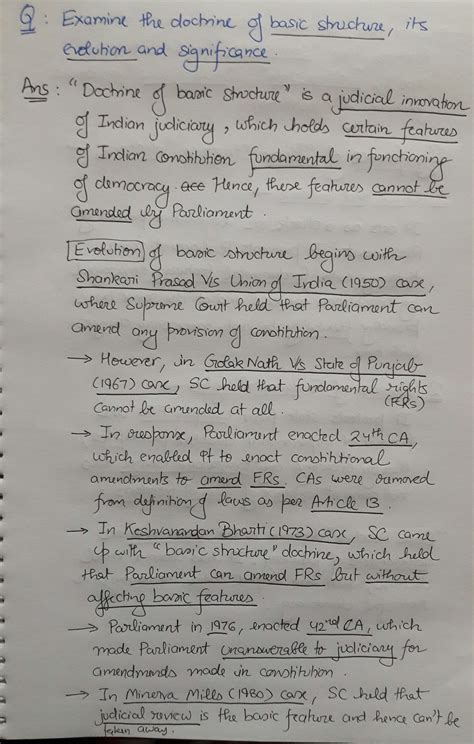 Q : Examine the doctrine of basic structure, its
evolution and significance.
Ans : "Doctrine of basic structure" is a judicial innovation
of Indian judiciary, which holds certain features
of Indian constitution fundamental in functioning
of democracy. Hence, these features cannot be
amended by Parliament.
Evolution of basic structure begins with
Shankari Prasad V/s Union of India (1950) case,
where Supreme Court held that Parliament can
amend any provision of constitution.
→ However, in Golak Nath Vs State of Punjab
(1967) case, SC held that fundamental rights
(FRs)
cannot be amended at all.
→ In response, Parliament enacted 24th CA,
which enabled it to enact constitutional
amendments to amend FRs. CAs were removed
from definition of laws as per Article 13.
→ In Keshvanandan Bharti (1973) case, SC came
up with "basic structure" doctrine, which held
that Parliament can amend FRs but without
affecting basic features.
→ Parliament in 1976, enacted 42nd CA, which
made Parliament unanswerable to judiciary for
amendments made in constitution.
→ In Minerva Mills (1980) case, SC held that
judicial review is the basic feature and hence can't be
taken away.